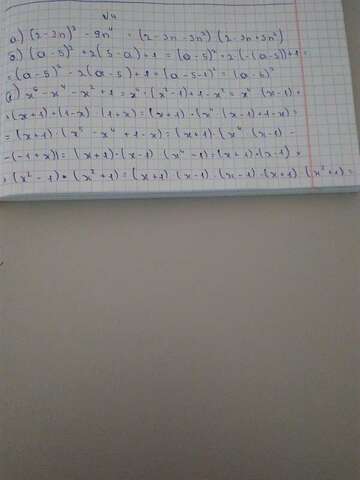 √4
а) (2-3n)² - 9n⁴ = (2-3n-3n²)(2-3n+3n²)
(a-5)² + 2(5-a)+1 = (a-5)² + 2(-(a-5))+1 =
= (a-5)² - 2(a-5)+1 = (a-5-1)² = (a-6)²
x⁶-x⁴-x²+1 = x⁴·(x²-1)+1-x² = x⁴(x-1)·
·(x+1)+(1-x)·(1+x) = (x+1)·(x⁴(x-1)+1-x) =
= (x+1)·(x⁵-x⁴+1-x) = (x+1)·(x⁴(x-1)-
-(-1+x)) = (x+1)·(x-1)·(x⁴-1) = (x+1)·(x-1)·
·(x²-1)·(x²+1) = (x+1)·(x-1)·(x-1)·(x+1)·(x²+1) =